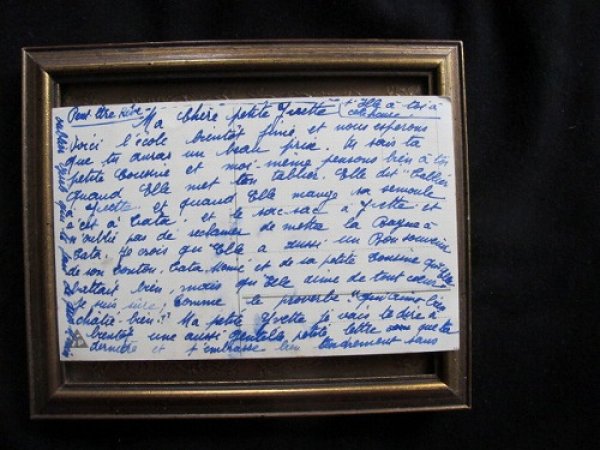 Ma chère petite Yvette
Voici l'école bientôt finie et nous espérons
que tu auras un beau prix. Tu sais ta
petite cousine et moi-même pensons bien à toi
quand Elle met ton tablier. Elle dit "Tablier
à Yvette et quand Elle mange sa semoule
c'est à Tata, et le sac-sac à Yvette et
n'oublie pas de réclamer de mettre la Bague à
Tata. Je crois qu'Elle a aussi un Bon souvenir
de son Tonton, Tata, Mémé et de sa petite cousine qu'Elle
battait bien, mais qu'Elle aime de tout cœur
je suis sûre, comme le proverbe "Qui aime bien
châtie bien." Ma petite Yvette je vais te dire à
bientôt une aussi gentille petite lettre que la
dernière et t'embrasse bien tendrement sans